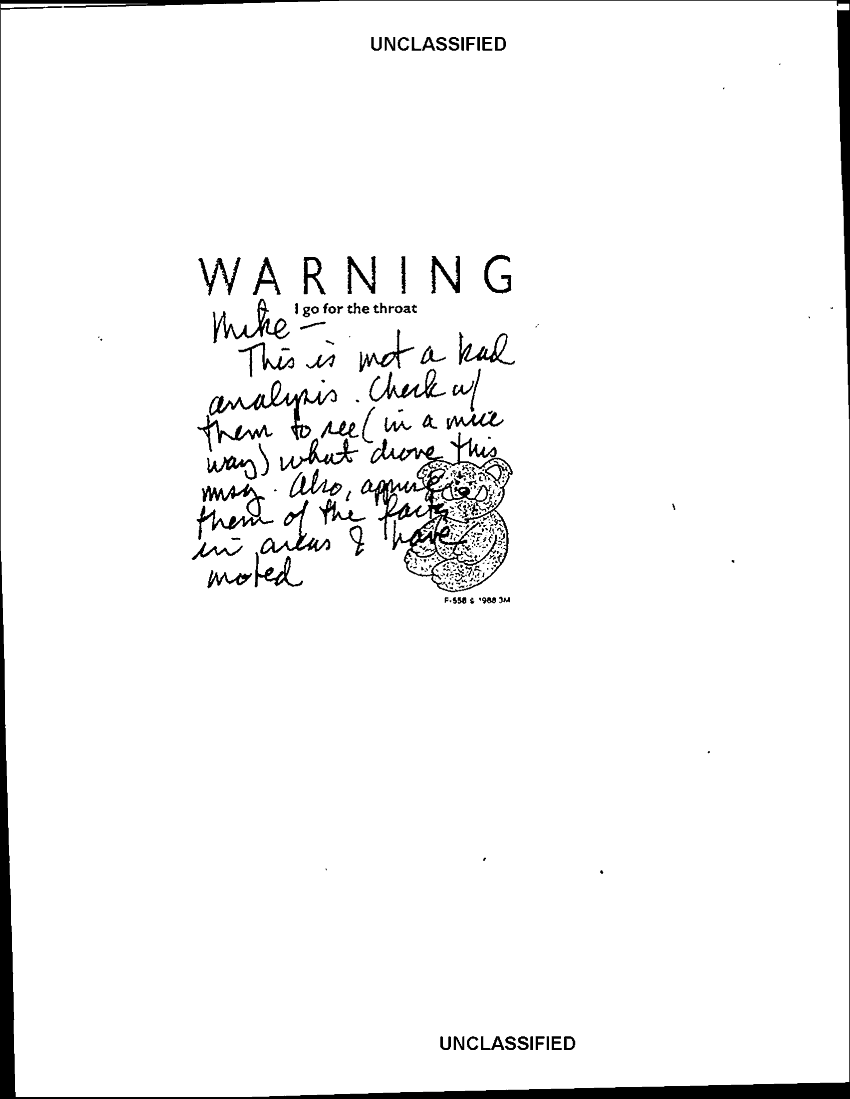 UNCLASSIFIED
WARNING
I go for the throat
Mike —
This is not a bad
analysis. Check w/
them to see (in a nice
way) what drove this
msg. Also, apprise
them of the facts
in areas I have
noted
F-558 © 1988 3M
UNCLASSIFIED